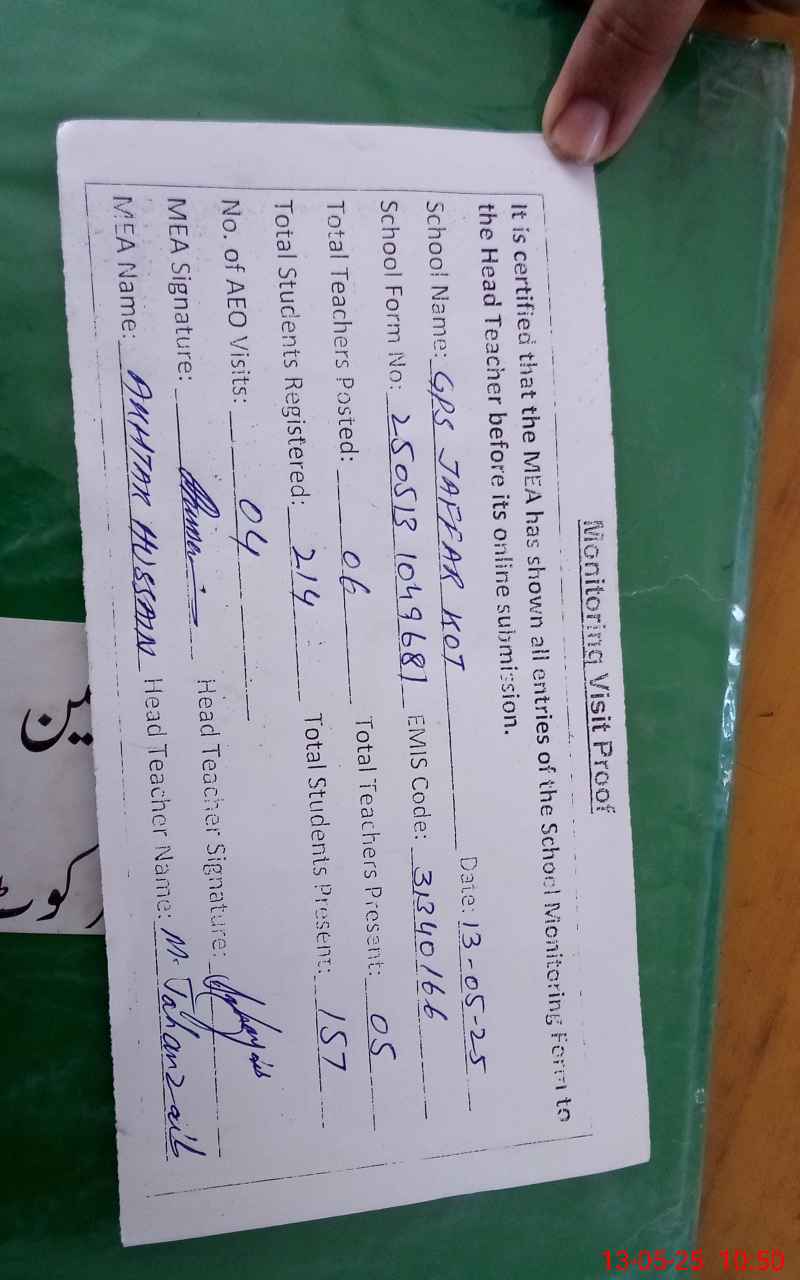 Monitoring Visit Proof
It is certified that the MEA has shown all entries of the School Monitoring Form to
the Head Teacher before its online submission.
School Name: GPS JAFFAR KOT Date: 13-05-25
School Form No: 250513 1049681 EMIS Code: 31340166
Total Teachers Posted: 06 Total Teachers Present: 05
Total Students Registered: 214 Total Students Present: 157
No. of AEO Visits: 04
MEA Signature: Head Teacher Signature:
MEA Name: AKHTAR HUSSAIN Head Teacher Name: M. Jahanzaib
13-05-25 10:50